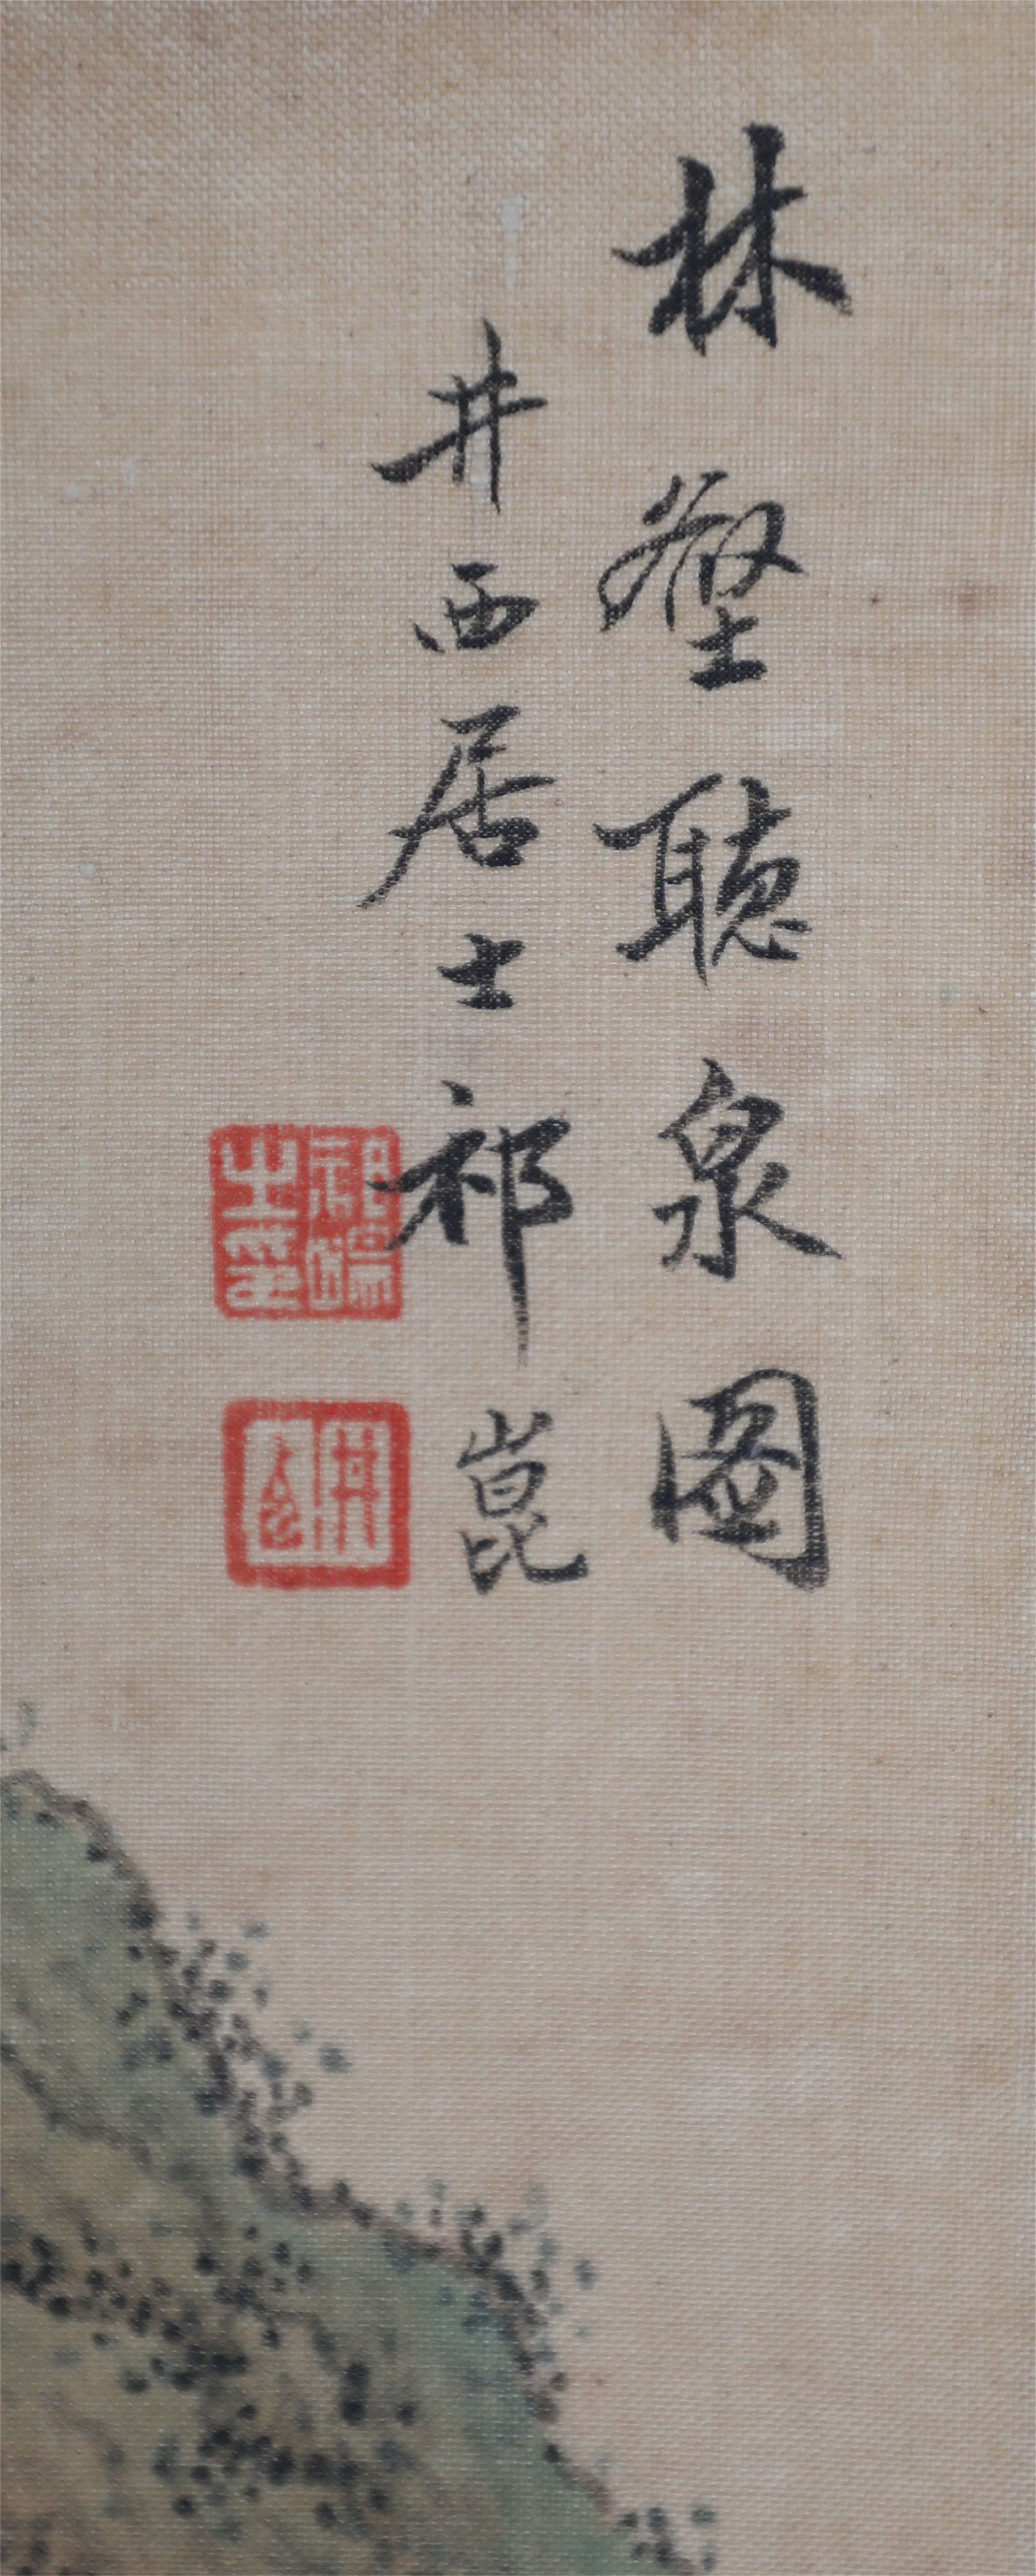 林壑聴泉圖
井西居士祁崑